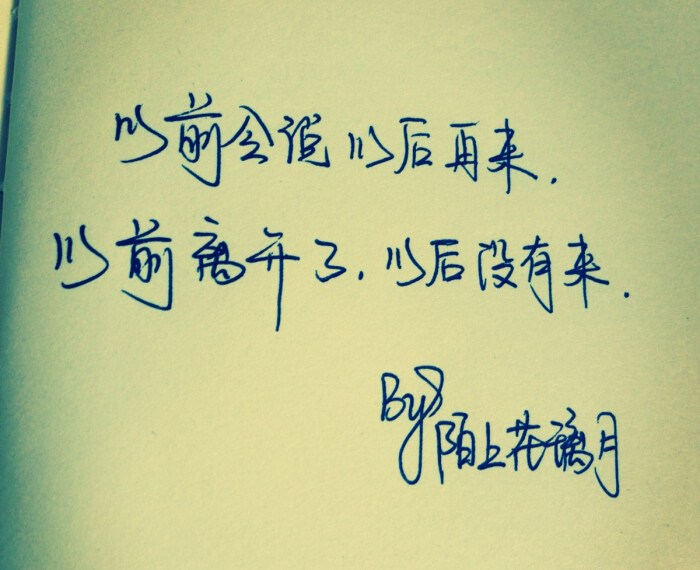 以前会说以后再来.
以前离开了.以后没有来.
By 陌上花璃月